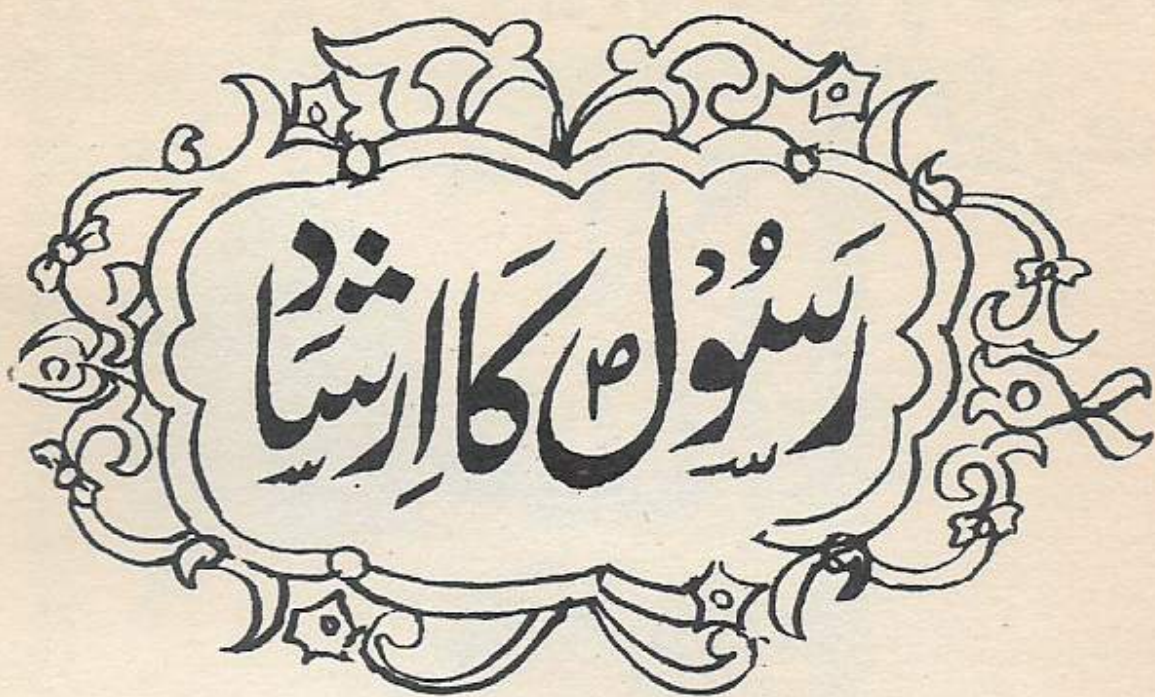 رَسُوْلؐ کَا اِرشَاد